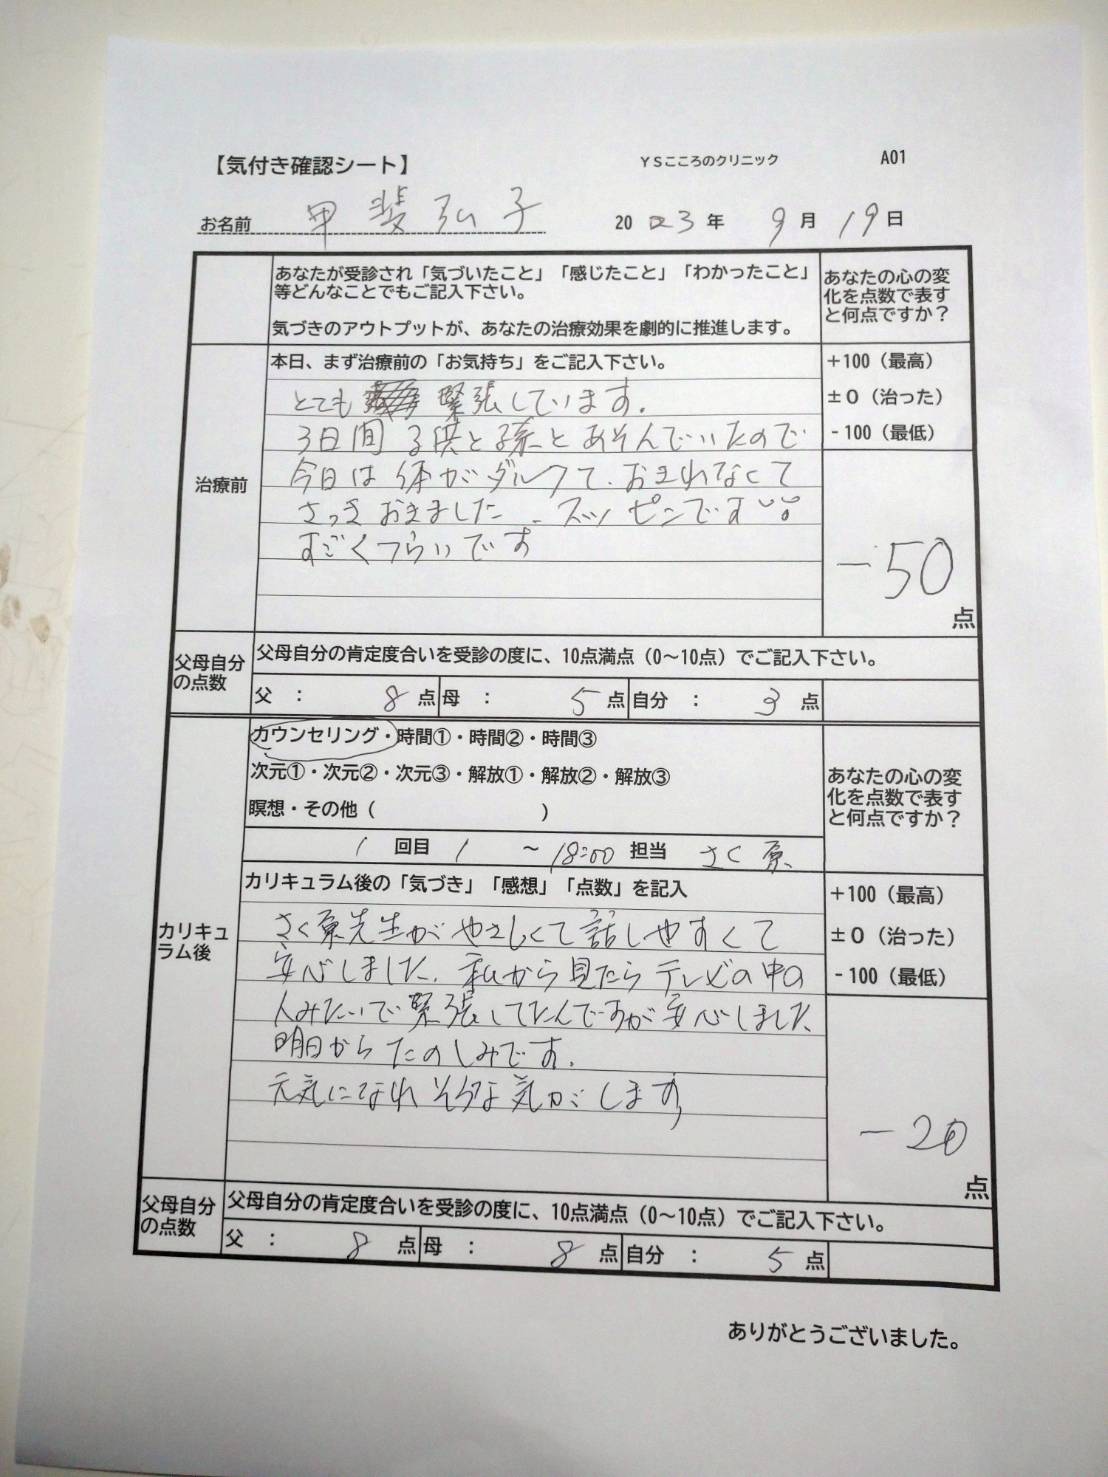 【気付き確認シート】 YSこころのクリニック A01
お名前 甲斐弘子 2023年 9月 19日
あなたが受診され「気づいたこと」「感じたこと」「わかったこと」
等どんなことでもご記入下さい。
気づきのアウトプットが、あなたの治療効果を劇的に推進します。
あなたの心の変
化を点数で表す
と何点ですか？
治療前
本日、まず治療前の「お気持ち」をご記入下さい。
とても 緊張しています.
3日間 子供と孫とあそんでいたので
今日は体がダルクて、おきれなくて
さっき おきました、スッピンです
すごくつらいです
+100（最高）
±0（治った）
-100（最低）
-50
点
父母自分
の点数
父母自分の肯定度合いを受診の度に、10点満点（0～10点）でご記入下さい。
父 ： 8 点 母 ： 5 点 自分 ： 3 点
カリキュ
ラム後
カウンセリング・時間①・時間②・時間③
次元①・次元②・次元③・解放①・解放②・解放③
瞑想・その他（ ）
1 回目 / ～18:00 担当 さく原
あなたの心の変
化を点数で表す
と何点ですか？
カリキュラム後の「気づき」「感想」「点数」を記入
さく原先生がやさしくて話しやすくて
安心しました. 私から見たらテレビの中の
人みたいで緊張してたんですが安心しました
明日からたのしみです.
元気になれそうな気がします
+100（最高）
±0（治った）
-100（最低）
-20
点
父母自分
の点数
父母自分の肯定度合いを受診の度に、10点満点（0～10点）でご記入下さい。
父 ： 8 点 母 ： 8 点 自分 ： 5 点
ありがとうございました。